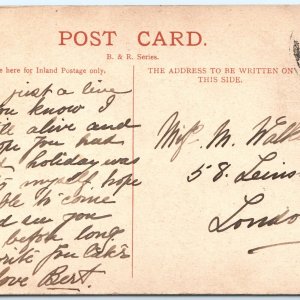 POST CARD.
B. & R. Series.
e here for Inland Postage only.
THE ADDRESS TO BE WRITTEN ON
THIS SIDE.
just a line
you know I
alive and
you had
holiday was
myself hope
to come
and see you
before long
write
love Bert.
Miss M. Walk
58. Leins
Londo